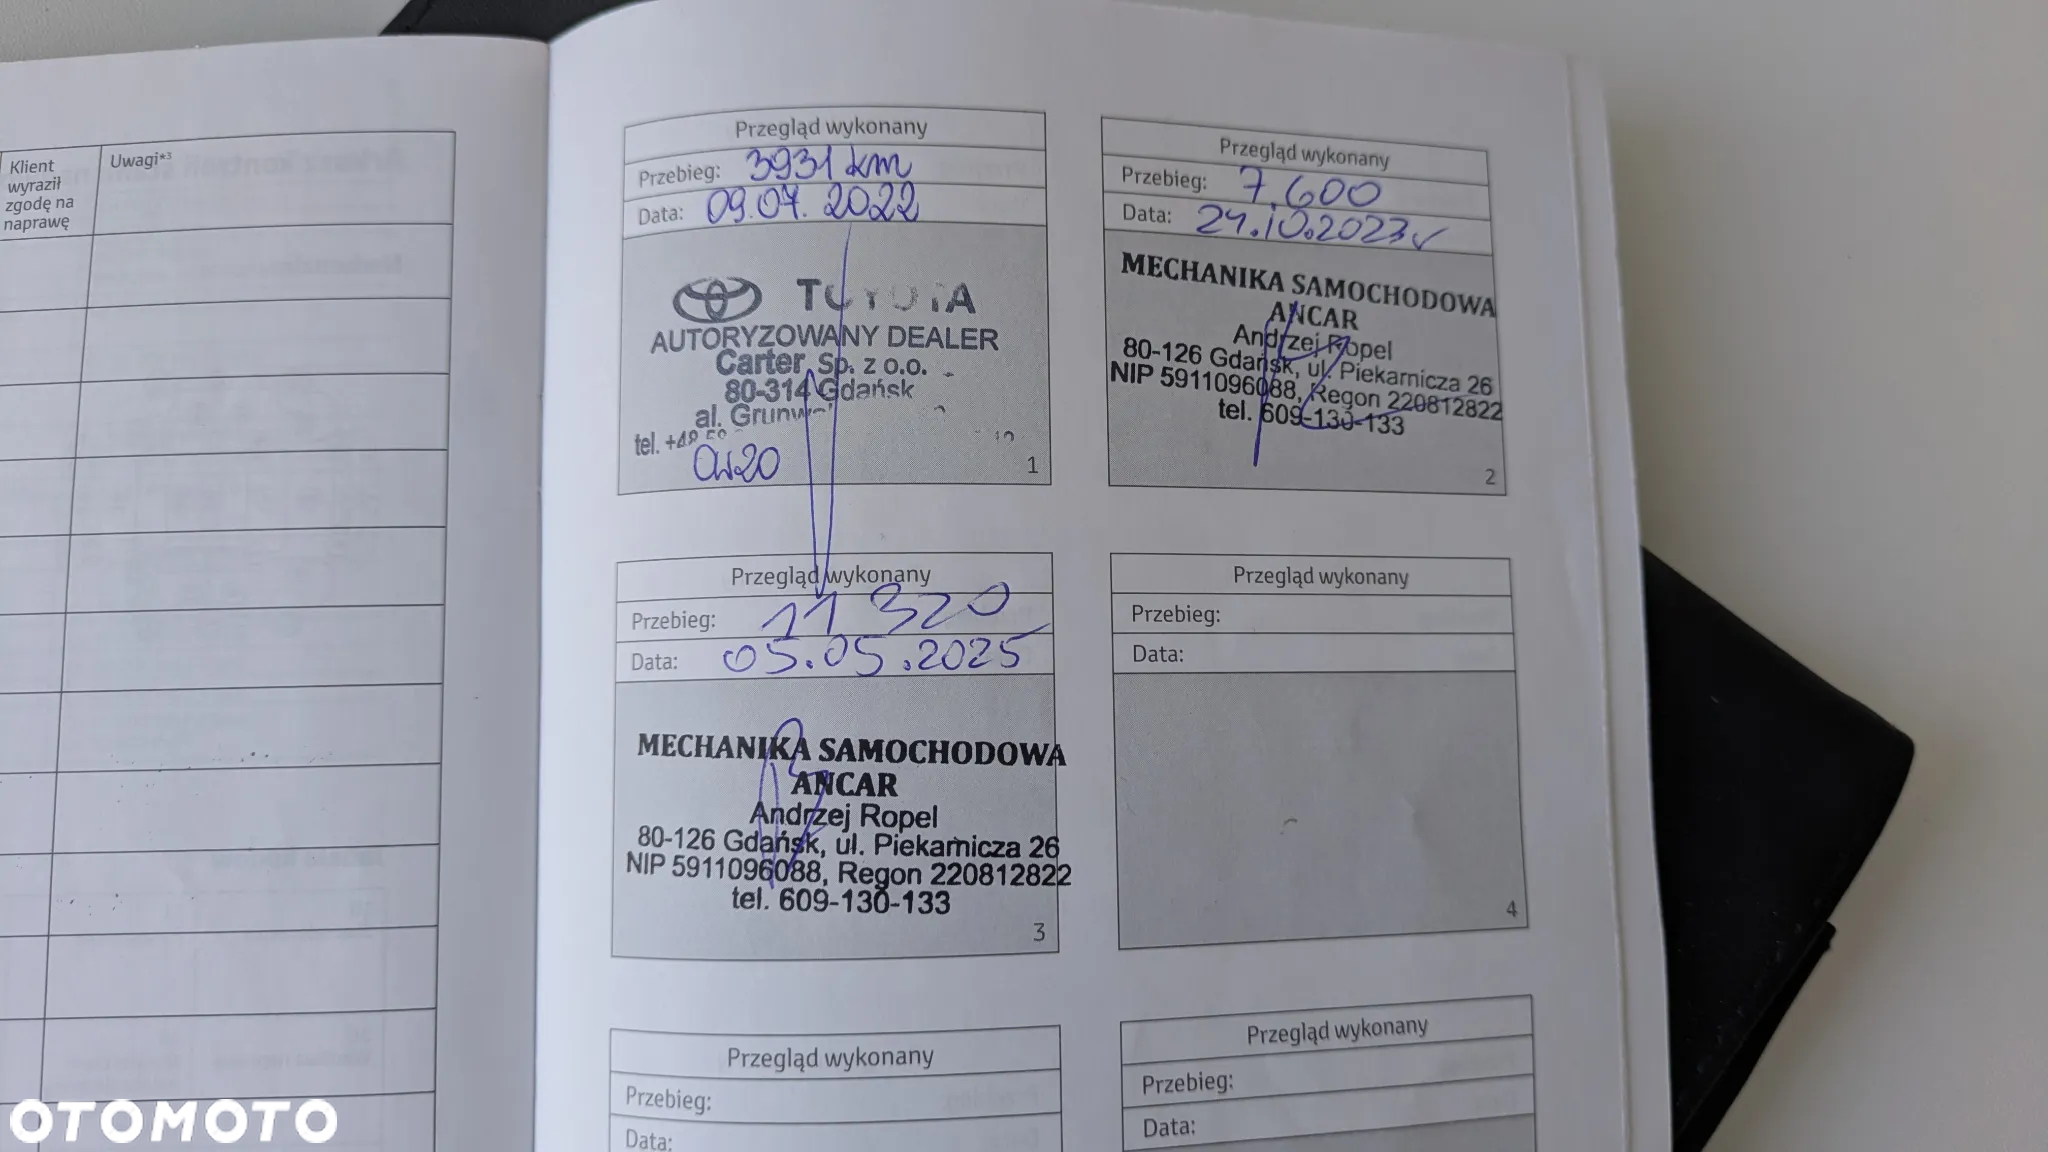 Klient
wyraził
zgodę na
naprawę
Uwagi*3
Przegląd wykonany
Przebieg: 3931 km
Data: 09.07.2022
TOYOTA
AUTORYZOWANY DEALER
Carter Sp. z o.o.
80-314 Gdańsk
al. Grunw
tel. +48 58
0W20
1
Przegląd wykonany
Przebieg: 7.600
Data: 24.10.2023
MECHANIKA SAMOCHODOWA
ANCAR
Andrzej Ropel
80-126 Gdańsk, ul. Piekarnicza 26
NIP 5911096088, Regon 220812822
tel. 609-130-133
2
Przegląd wykonany
Przebieg: 11 320
Data: 05.05.2025
MECHANIKA SAMOCHODOWA
ANCAR
Andrzej Ropel
80-126 Gdańsk, ul. Piekarnicza 26
NIP 5911096088, Regon 220812822
tel. 609-130-133
3
Przegląd wykonany
Przebieg:
Data:
4
Przegląd wykonany
Przebieg:
Data:
Przegląd wykonany
Przebieg:
Data:
OTOMOTO